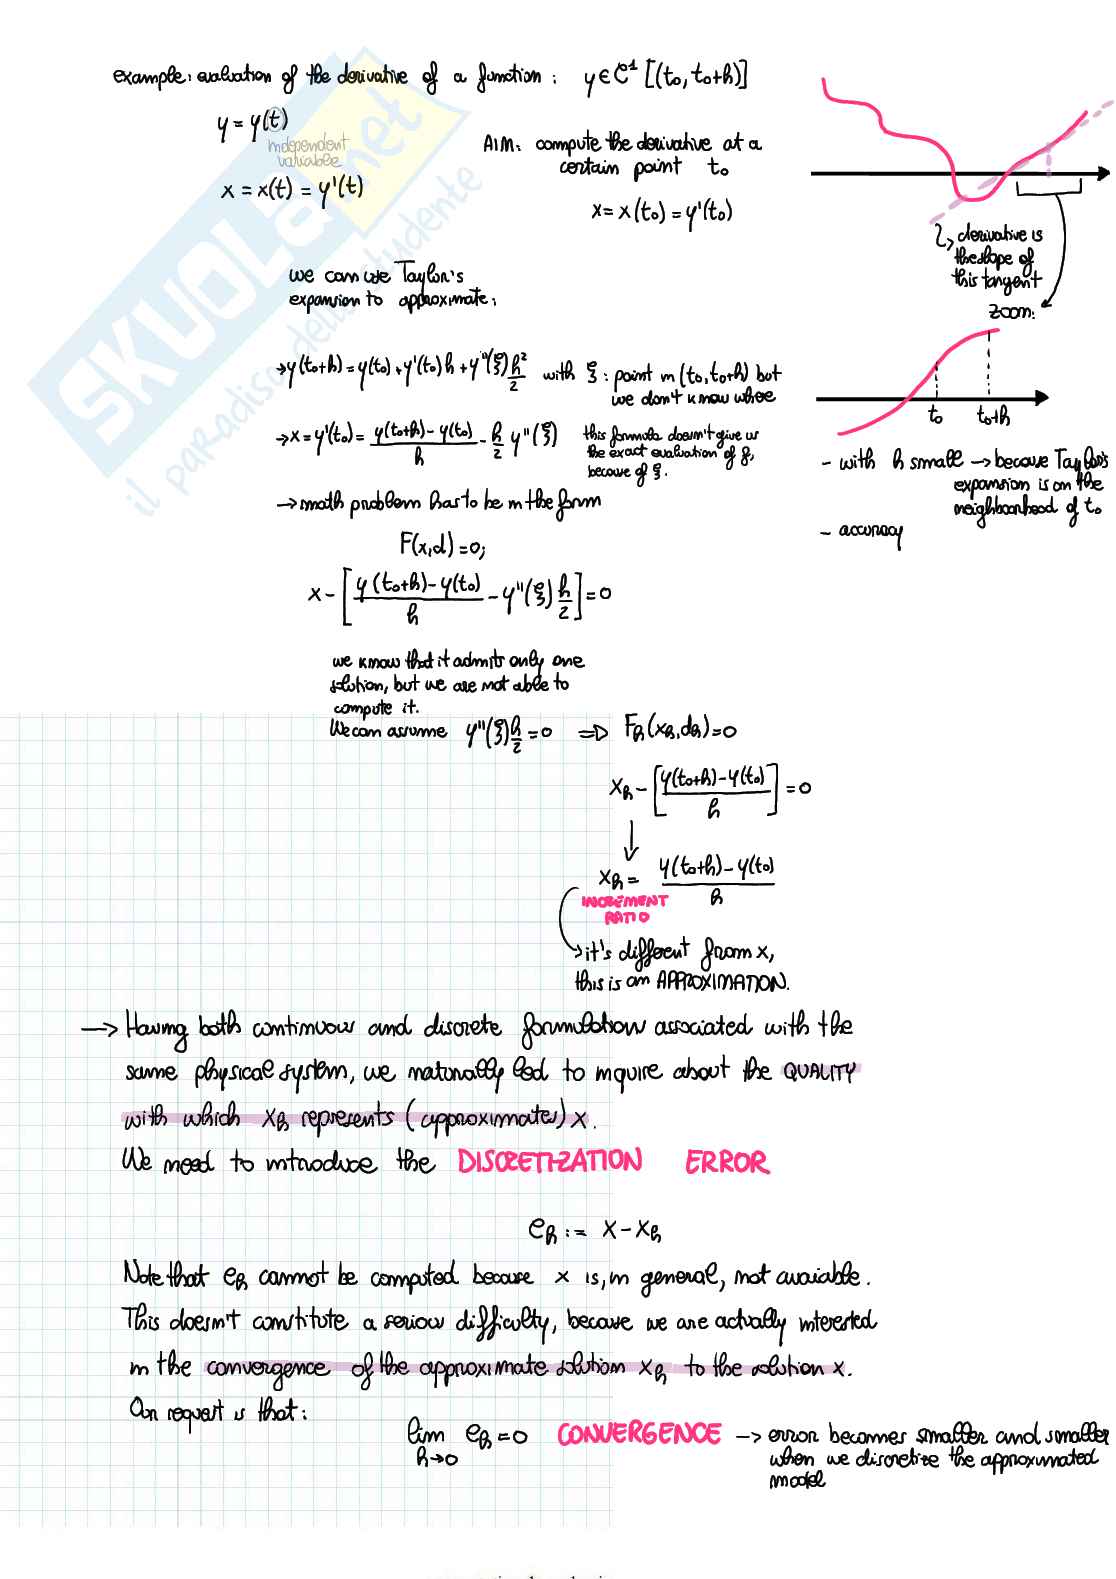 example: evaluation of the derivative of a function: y ∈ C¹ [(t₀, t₀+h)]
y = y(t)
independent
variable
x = x(t) = y'(t)
AIM: compute the derivative at a
certain point t₀
x = x(t₀) = y'(t₀)
derivative is
the slope of
this tangent
zoom:
t₀ t₀+h
we can use Taylor's
expansion to approximate:
→ y(t₀+h) = y(t₀) + y'(t₀)h + y''(ξ) h²/2 with ξ: point in (t₀, t₀+h) but
we don't know where
→ x = y'(t₀) = (y(t₀+h) - y(t₀))/h - h/2 y''(ξ)
this formula doesn't give us
the exact evaluation of f,
because of ξ.
- with h small → because Taylor's
expansion is on the
neighbourhood of t₀
- accuracy
→ math problem has to be in the form
F(x,d) = 0;
x - [(y(t₀+h) - y(t₀))/h - y''(ξ) h/2] = 0
we know that it admits only one
solution, but we are not able to
compute it.
We can assume y''(ξ) h/2 = 0 ⇒ Fₕ(xₕ, dₕ) = 0
xₕ - [(y(t₀+h) - y(t₀))/h] = 0
↓
xₕ = (y(t₀+h) - y(t₀))/h
INCREMENT
RATIO
→ it's different from x,
this is an APPROXIMATION.
→ Having both continuous and discrete formulation associated with the
same physical system, we naturally led to inquire about the QUALITY
with which xₕ represents (approximates) x.
We need to introduce the DISCRETIZATION ERROR
eₕ := x - xₕ
Note that eₕ cannot be computed because x is, in general, not avaiable.
This doesn't constitute a serious difficulty, because we are actually interested
in the convergence of the approximate solution xₕ to the solution x.
Our request is that:
lim eₕ = 0 CONVERGENCE → error becomes smaller and smaller
h→0
when we discretize the approximated
model
SKUOLA.net
il paradiso dello studente